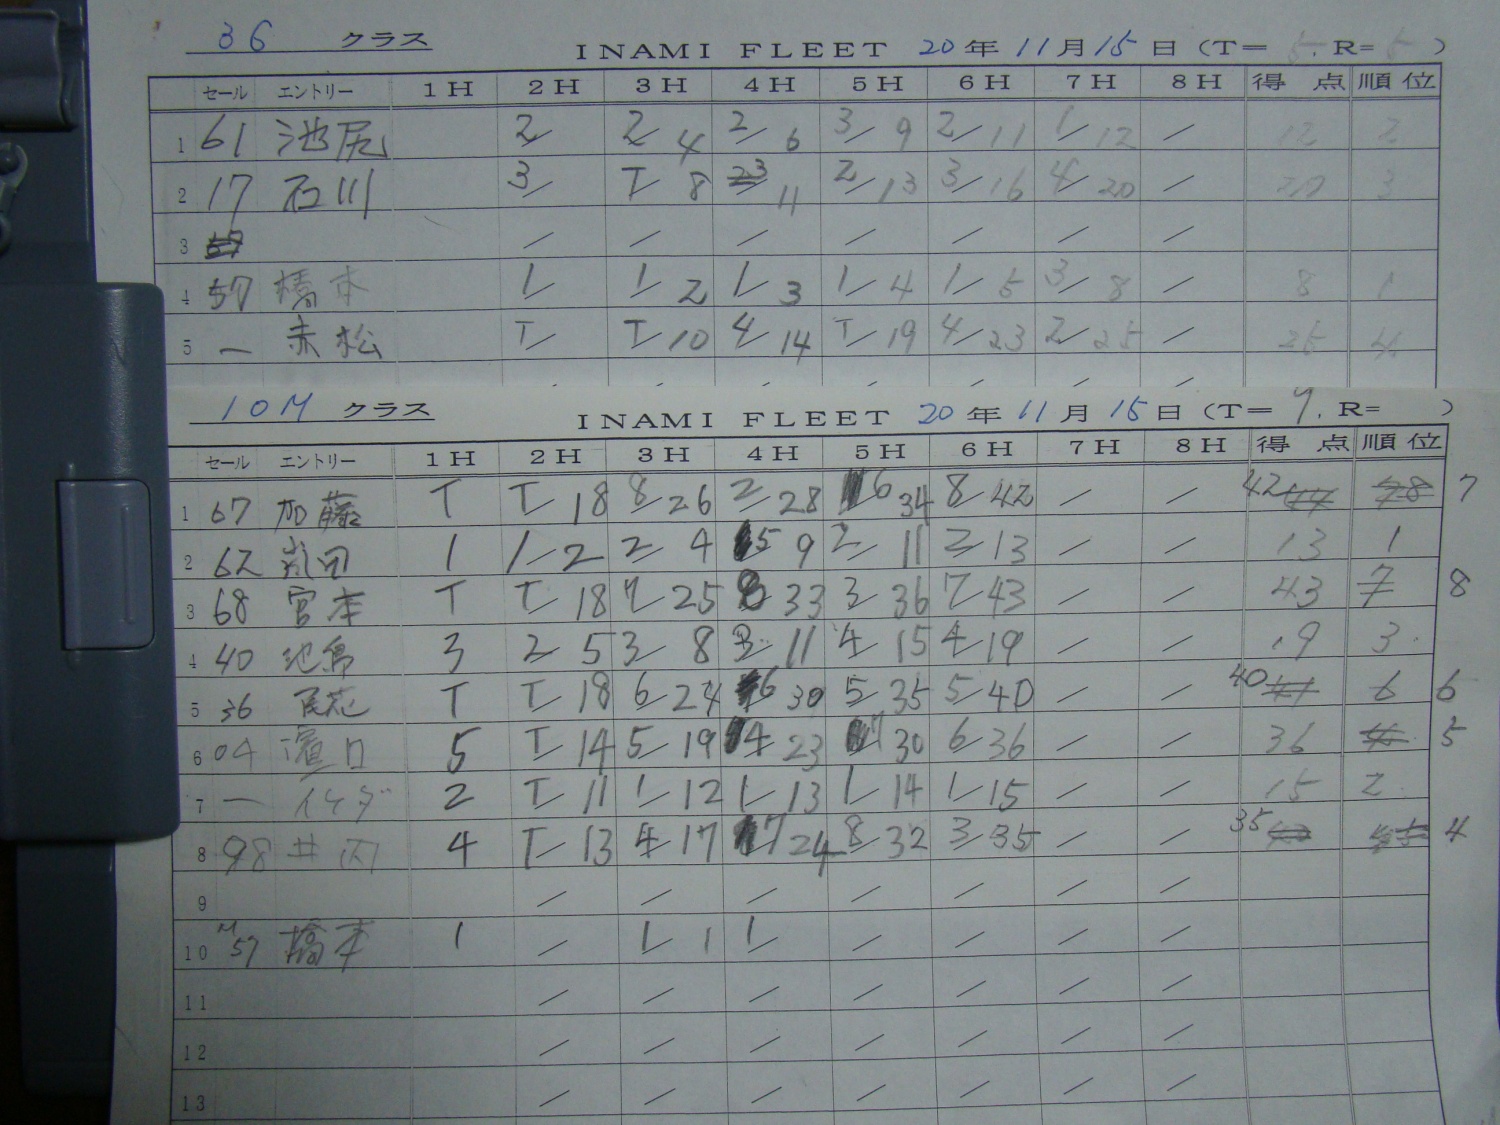 36 クラス INAMI FLEET 20年 11月 15日 (T= 5, R= 5 )
セール エントリー 1H 2H 3H 4H 5H 6H 7H 8H 得点 順位
1 61 池尻 2/ 2/4 2/6 3/9 2/11 1/12 / 12 2
2 17 石川 3/ T/8 3/11 2/13 3/16 4/20 / 20 3
3 / / / / / / /
4 57 橋本 1/ 1/2 1/3 1/4 1/5 3/8 / 8 1
5 — 赤松 T/ T/10 4/14 T/19 4/23 2/25 / 25 4
10M クラス INAMI FLEET 20年 11月 15日 (T= 9, R= )
セール エントリー 1H 2H 3H 4H 5H 6H 7H 8H 得点 順位
1 67 加藤 T T/18 8/26 2/28 6/34 8/42 / / 42 7
2 62 1 1/2 2/4 5/9 2/11 2/13 / / 13 1
3 68 宮本 T T/18 7/25 8/33 3/36 7/43 / / 43 7 8
4 40 3 2/5 3/8 3/11 4/15 4/19 / / 19 3
5 36 尾花 T T/18 6/24 6/30 5/35 5/40 / / 40 6 6
6 04 濵口 5 T/14 5/19 4/23 7/30 6/36 / / 36 5
7 — イケダ 2 T/11 1/12 1/13 1/14 1/15 / / 15 2
8 98 井内 4 T/13 4/17 7/24 8/32 3/35 / / 35 4
9 / / / / / / /
10 M57 橋本 1 / 1/1 1/ / / / /
11 / / / / / / /
12 / / / / / / /
13 / / / / / / /